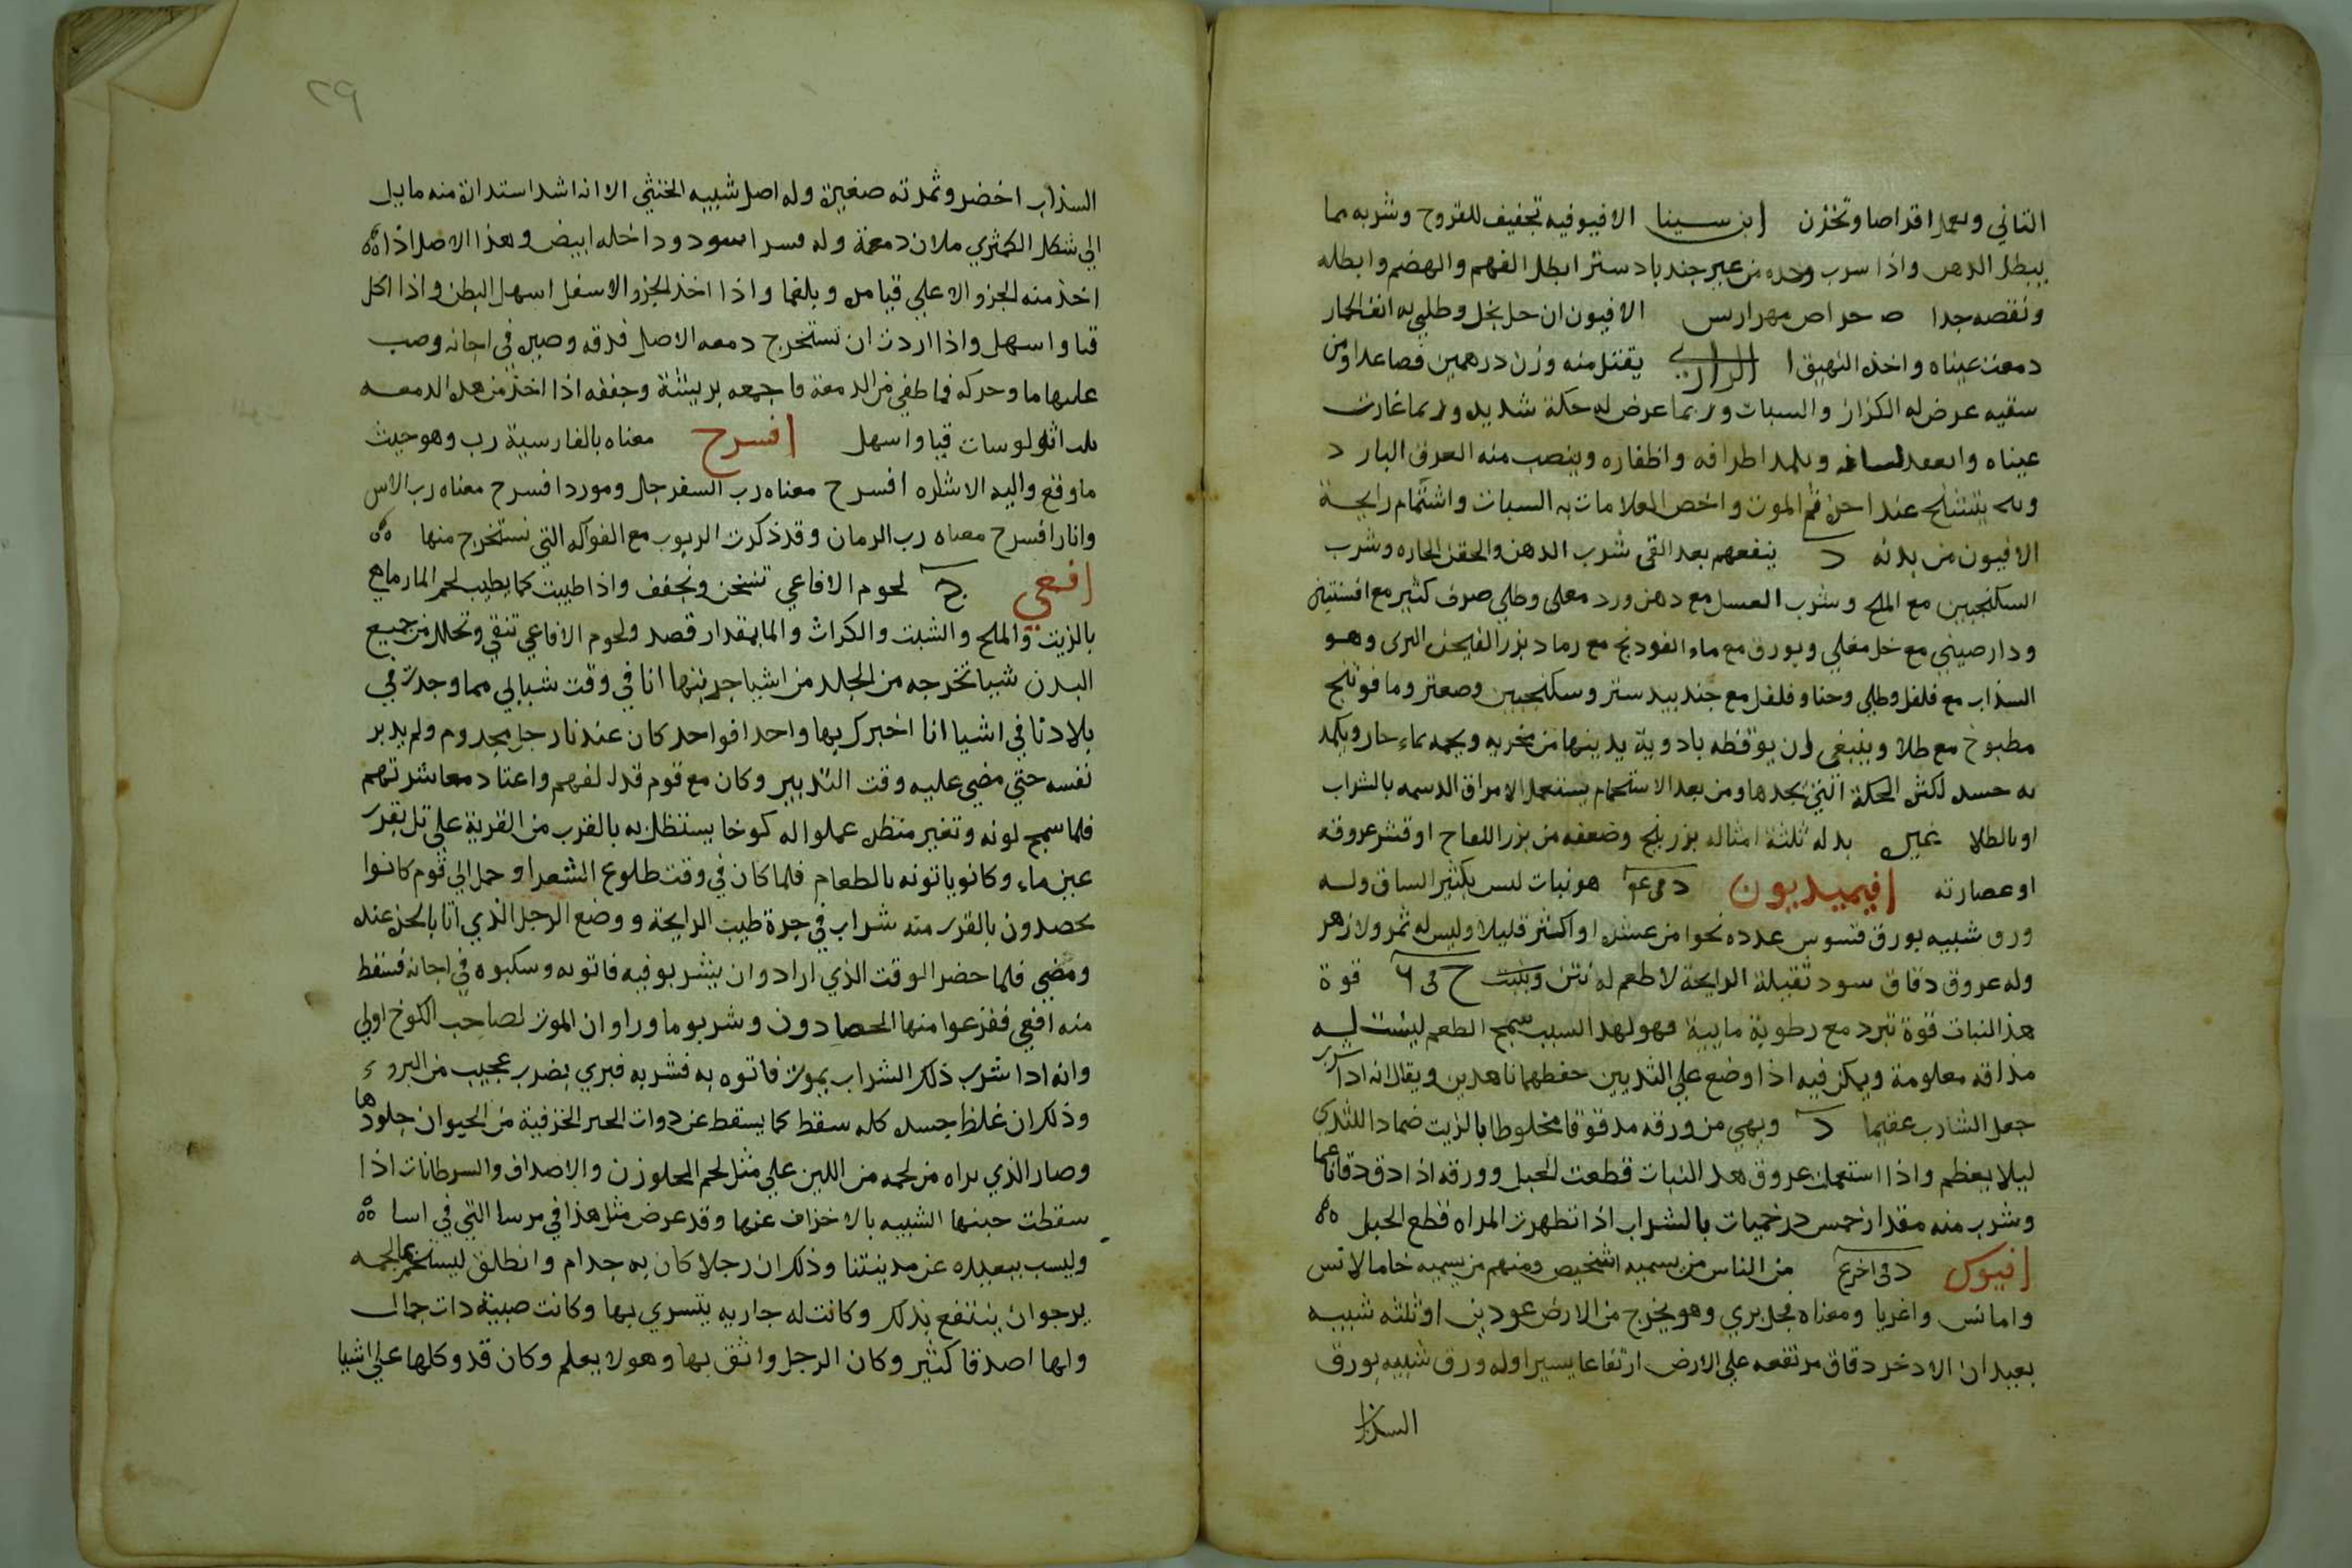 الثاني وىعمل اقراصا وتخزن ابن سينا الافيو فيه تجفيف للقروح وشربه مما
يبطل الدهن واذا سرب وحده من غير جند بادستر ابطل الفهم والهضم وابطله
ونقصه جدا الافيون ان حل بخل وطلي به انف الحمار
دمعت عيناه واخذ النهيق الرازي يقتل منه وزن درهمين فصاعدا ومن
سقيه عرض له الكزاز والسبات وربما عرض له حكة شديده وربما غارت
عيناه وانعقد لسانه وىكمد اطرافه واظفاره وينصب منه العرق البارد
يتشنج عند اخره قم الموت واخص العلامات به السبات واشتمام رايحة
الافيون من بدنه د ينفعهم بعد القى شرب الدهن والحقن الحاره وشرب
السكنجبين مع الملح وشرب العسل مع دهن ورد معلى وطلي صرف كثير مع افسنتين
ودارصيني مع خل مغلي وبورق مع ماء الفودنج مع رماد بزر الفيجن البرى وهو
السذاب مع فلفل وطلى وحنا وفلفل مع جندبيدستر وسكنجبين وصعتر وما فوتنج
مطبوخ مع طلا وينبغى ان يوقظه بادوية يدينها من منخريه ويحمه بماء حار ويكمد
به جسده لكثره الحكة التي يجدها ومن بعد الاستحمام يستعمل الامراق الدسمه بالشراب
او بالطلا غيره بدله ثلثة امثاله بزر بنج وضعفه من بزر اللفاح او قشر عروقه
او عصارته افيميديون د فى عه هو نبات ليس بكثير الساق وله
ورق شبيه بورق قسوس عدده نحوا من عشره او اكثر قليلا وليس له ثمر ولا زهر
وله عروق دقاق سود ثقيلة الرايحة لا طعم له نتن وينبت ح فى ٦ قوة
هذا النبات قوة تبرد مع رطوبة مايية فهو لهذا السبب سمج الطعم ليست له
مذاقه معلومة ويمكن فيه اذا وضع على الثديين حفظهما ناهدين ويقال انه اذا شرب
جعل الشارب عقيما د ويهي من ورقه مدقوقا مخلوطا بالزيت ضمادا للثدى
ليلا يعظم واذا استعملت عروق هذا النبات قطعت الحبل وورقه اذا دق دقا ناعما
وشرب منه مقدار خمس درخميات بالشراب اذا تطهرت المراه قطع الحبل ه
افيوس د فى اخر ع من الناس من يسميه اسخيص ومنهم من يسميه خاما لانس
وامائس واغريا ومعناه فجل بري وهو يخرج من الارض عودين او ثلثه شبيه
بعيدان الادخر دقاق مرتفعه على الارض ارتفاعا يسيرا وله ورق شبيه بورق
السذاب
٢٩
السذاب اخضر وثمرته صغيرة وله اصل شبيه الخنثي الا انه اشد استدارة منه مايل
الي شكل الكمثري ملان دمعة وله قسر اسود وداخله ابيض وهذا الاصل اذا ه
اخذ منه الجزو الاعلي قيا مره وبلغما واذا اخذ الجزو الاسفل اسهل البطن واذا اكل
قيا واسهل واذا اردت ان تستخرج دمعه الاصل فدقه وصيره في اجانه وصب
عليها ما وحركه فما طفي من الدمعة فاجمعه بريشة وجففه اذا اخذ من هده الدمعه
ثلث اثولوسات قيا واسهل افسرح معناه بالفارسية رب وهو حيث
ما وقع واليه الاشاره افسرح معناه رب السفرجل ومورد افسرح معناه رب الاس
وانار افسرح معناه رب الرمان وقد ذكرت الربوب مع الفواكه التي نستخرج منها ه
افعي ج لحوم الافاعي تسخن وتجفف واذا طيبت كما يطيب لحم المارماهج
بالزيت والملح والشبت والكراث والما بمقدار قصد ولحوم الافاعي تنقي وتحلل من جميع
البدن شيا تخرجه من الجلد من اشيا جربتها انا في وقت شبابي مما وجدت في
بلادنا في اشيا انا اخبرك بها واحدا فواحد كان عندنا رجل مجدوم ولم يدبر
نفسه حتي مضي عليه وقت التدبير وكان مع قوم قدل لفهم واعتاد معاشرتهم
فلما سمج لونه وتغير منظره عملوا له كوخا يستظل به بالقرب من القرية علي تل بقرب
عين ماء وكانو ياتونه بالطعام فلما كان في وقت طلوع الشعرا وحمل الي قوم كانوا
يحصدون بالقرب منه شراب في جرة طيب الرايحة ووضع الرجل الذي اتا بالحر عنده
ومضي فلما حضر الوقت الذي ارادوا ان يشربو فيه فاتو به وسكبوه في اجانه فسقط
منه افعي ففزعوا منها الحصادون وشربو ما وراوا ان الموت لصاحب الكوخ اولي
وانه ادا شرب ذلك الشراب يموت فاتوه به فشربه فبري بضرب عجيب من البروء
وذلك ان غلظ جسده كله سقط كما يسقط عن دوات الحبر الخزفية من الحيوان جلودها
وصار الذي نراه من لحمه من اللين علي مثل لحم الحلوزن والاصداف والسرطانات اذا
سقطت جبنها الشبيه بالاخزاف عنها وقد عرض مثل هذا في مرسا التي في اسا ه
وليسب ببعيده عن مدينتنا وذلك ان رجلا كان به جدام وانطلق ليستحم عا لحمه
يرجو ان ينتفع بذلك وكانت له جاريه يتسري بها وكانت صبية دات جمال
ولها اصدقا كثير وكان الرجل واثق بها وهو لا يعلم وكان قد وكلها علي اشيا